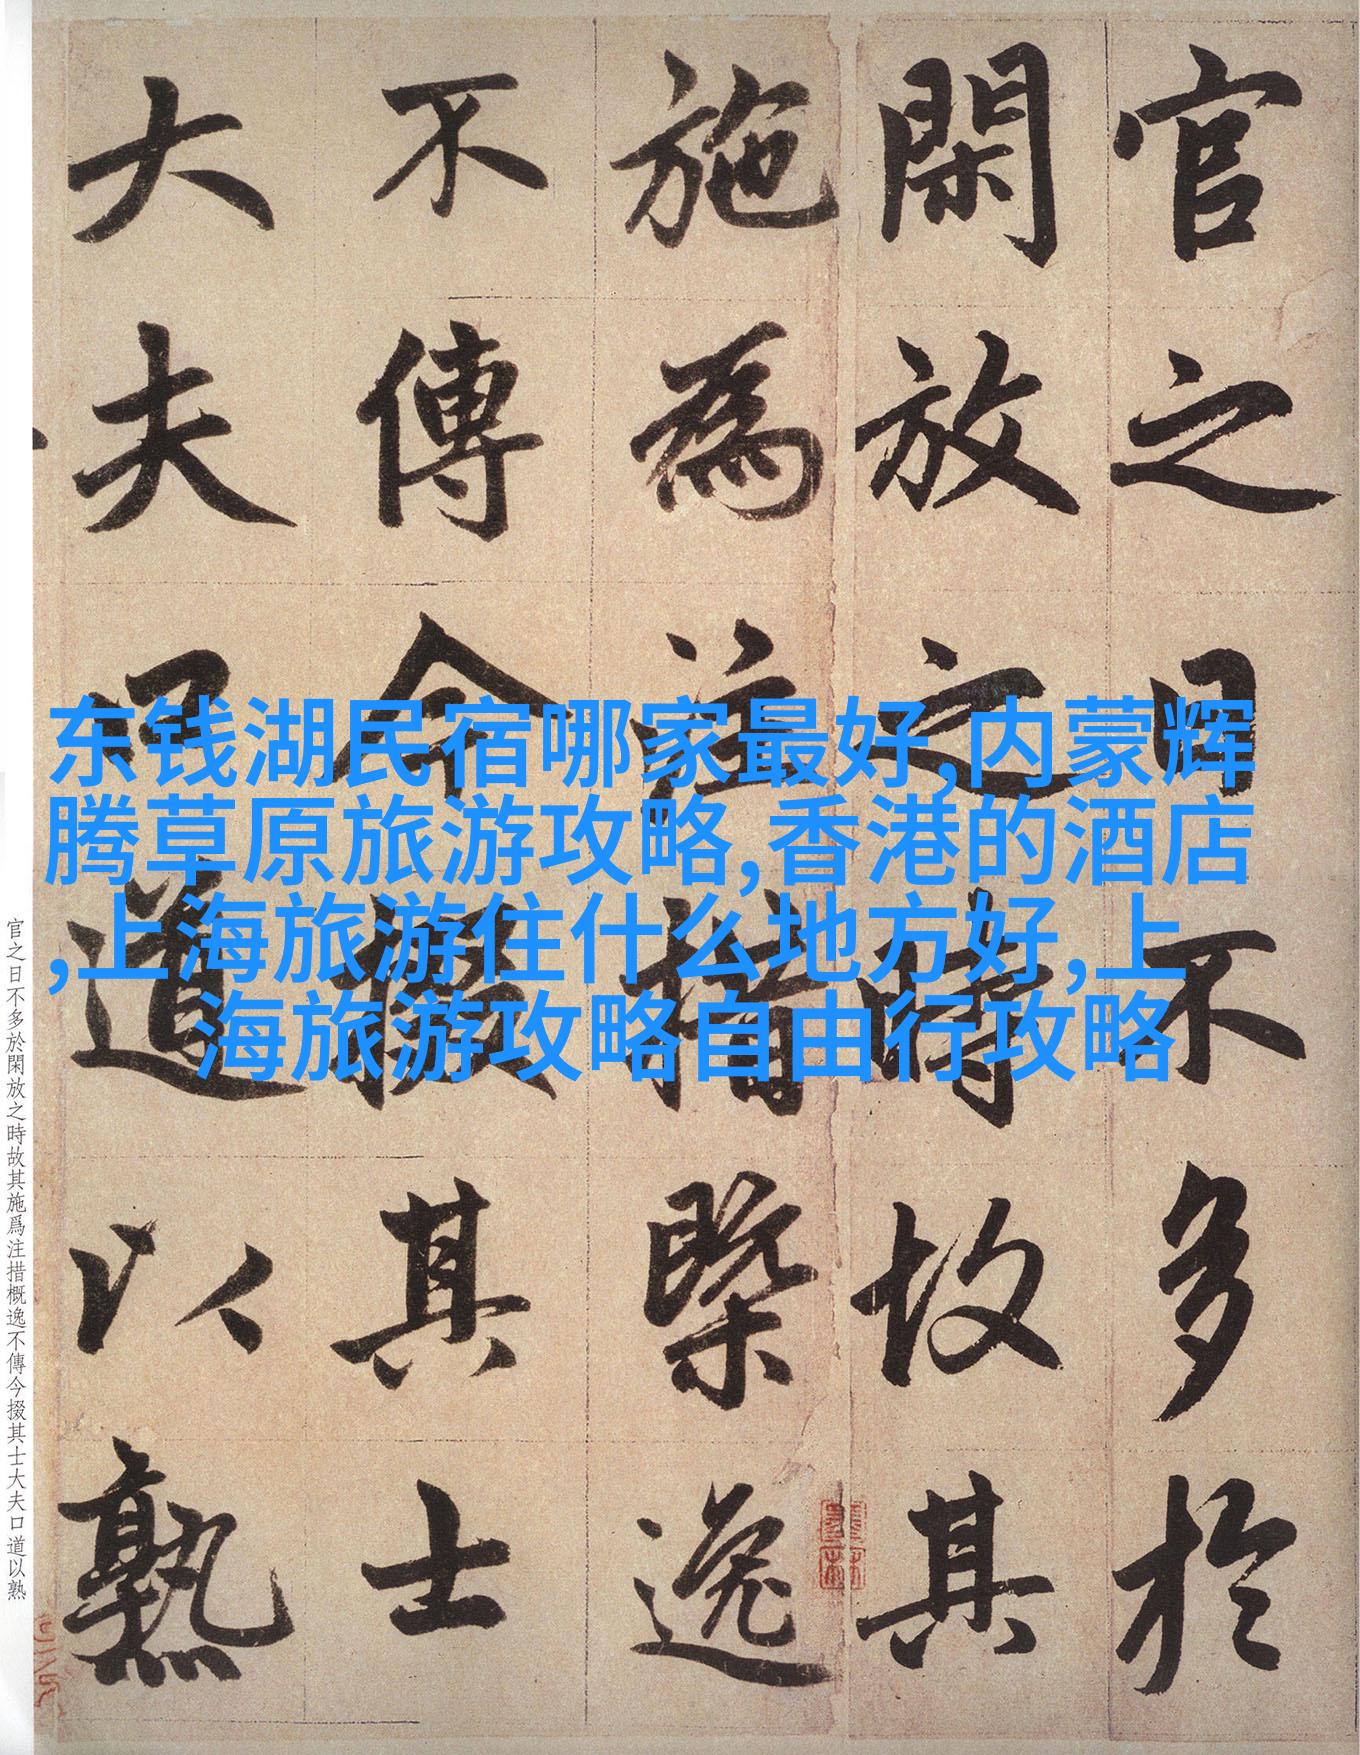 官之日不多於
閑放之時故其
施為注措槩逸
不傳今掇其士
大夫口道以熟
东钱湖民宿哪家最好,内蒙辉
腾草原旅游攻略,香港的酒店
,上海旅游住什么地方好,上
海旅游攻略自由行攻略
官之日不多於閑放之時故其施爲注措概逸不傳今掇其士大夫口道以熟